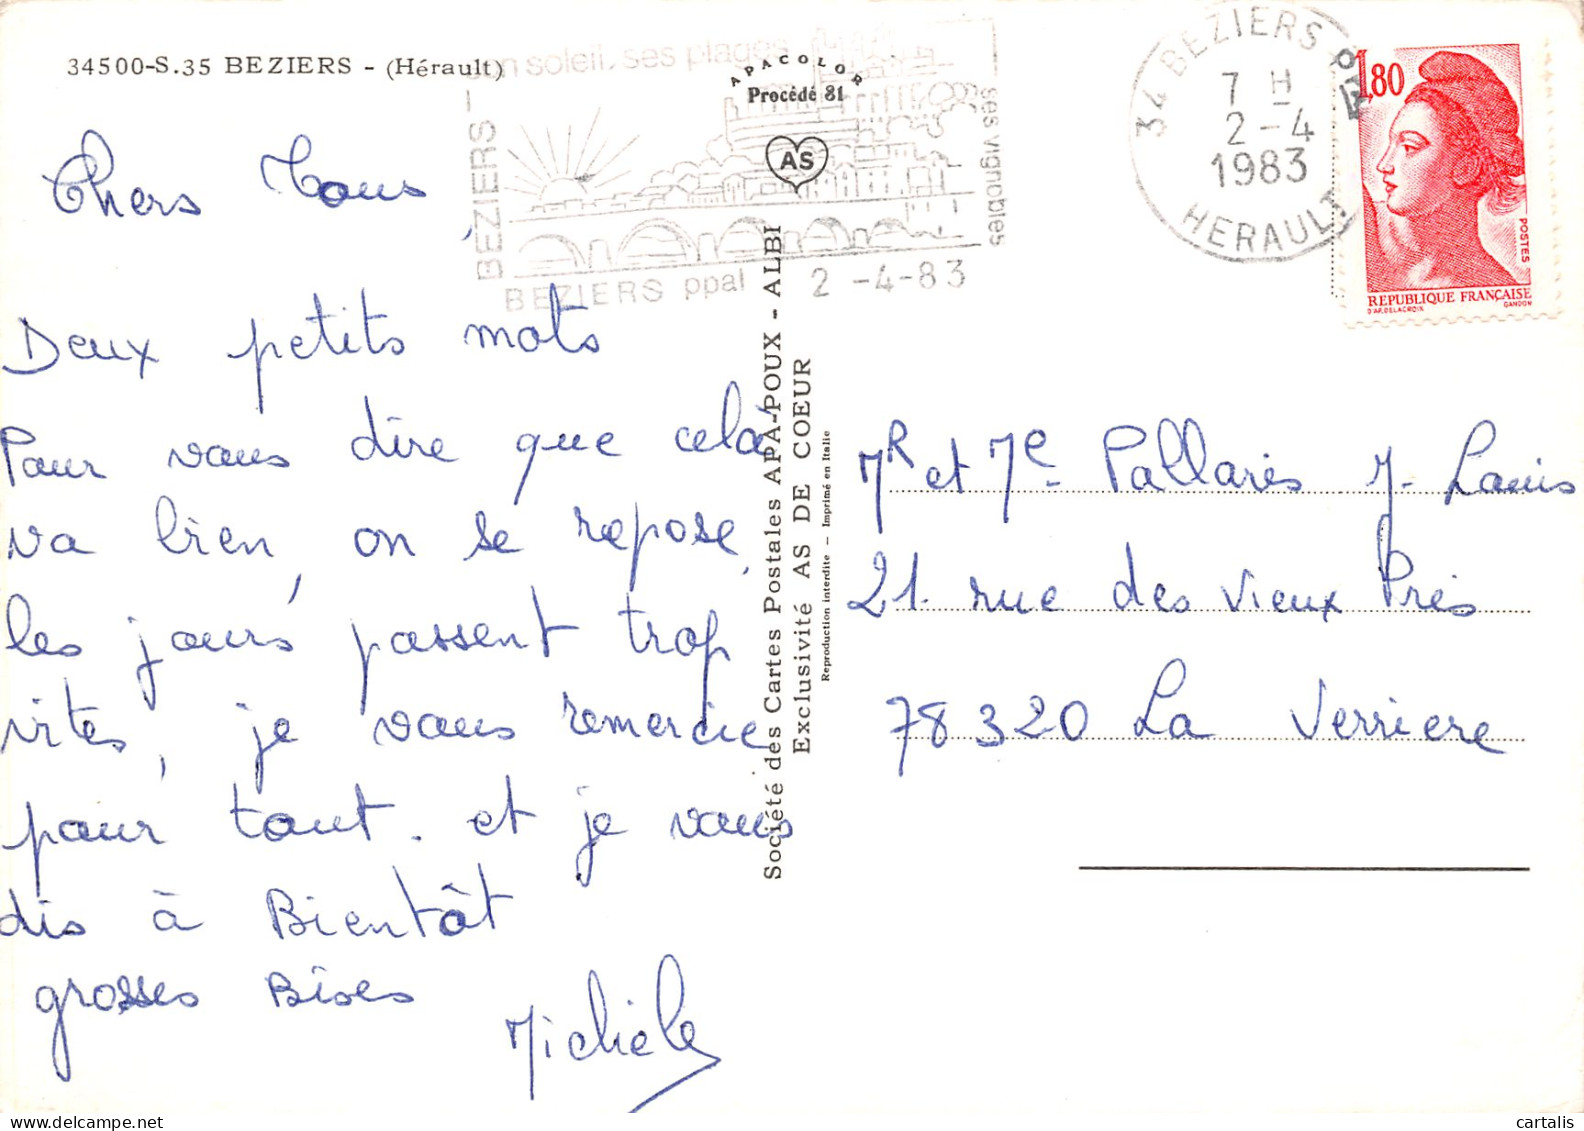 34500-S.35 BEZIERS - (Hérault)
BEZIERS -
soleil, ses plages
ses vignobles
BEZIERS ppal 2 -4-83
APACOLOR
Procédé 81
AS
34 BEZIERS PPAL
7 H
2-4
1983
HERAULT
1,80
POSTES
REPUBLIQUE FRANÇAISE
D'AP. DELACROIX GANDON
Chers Tous,
Deux petits mots
Pour vous dire que celà
va bien, on se repose,
les jours passent trop
vites, je vous remercie
pour tout. et je vous
dis à Bientôt
grosses Bises
Michèle
Société des Cartes Postales APA-POUX - ALBI
Exclusivité AS DE COEUR
Reproduction interdite - Imprimé en Italie
MR et Me Pallarès J. Louis
21. rue des Vieux Près
78320 La Verriere
cartalis